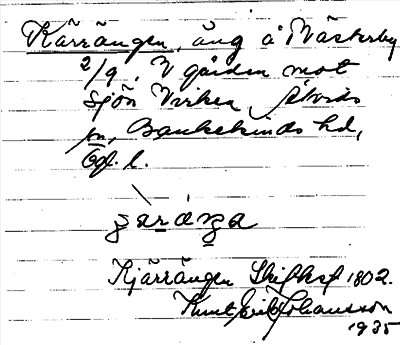 Kärrängen, äng å Västerby
2/9. V gården mot
sjön Verken, Skeds
sn, Bankekinds hd,
Ögl. l.
Kjärrängen Skifhdl 1802.
Knut Erik Johansson
1935